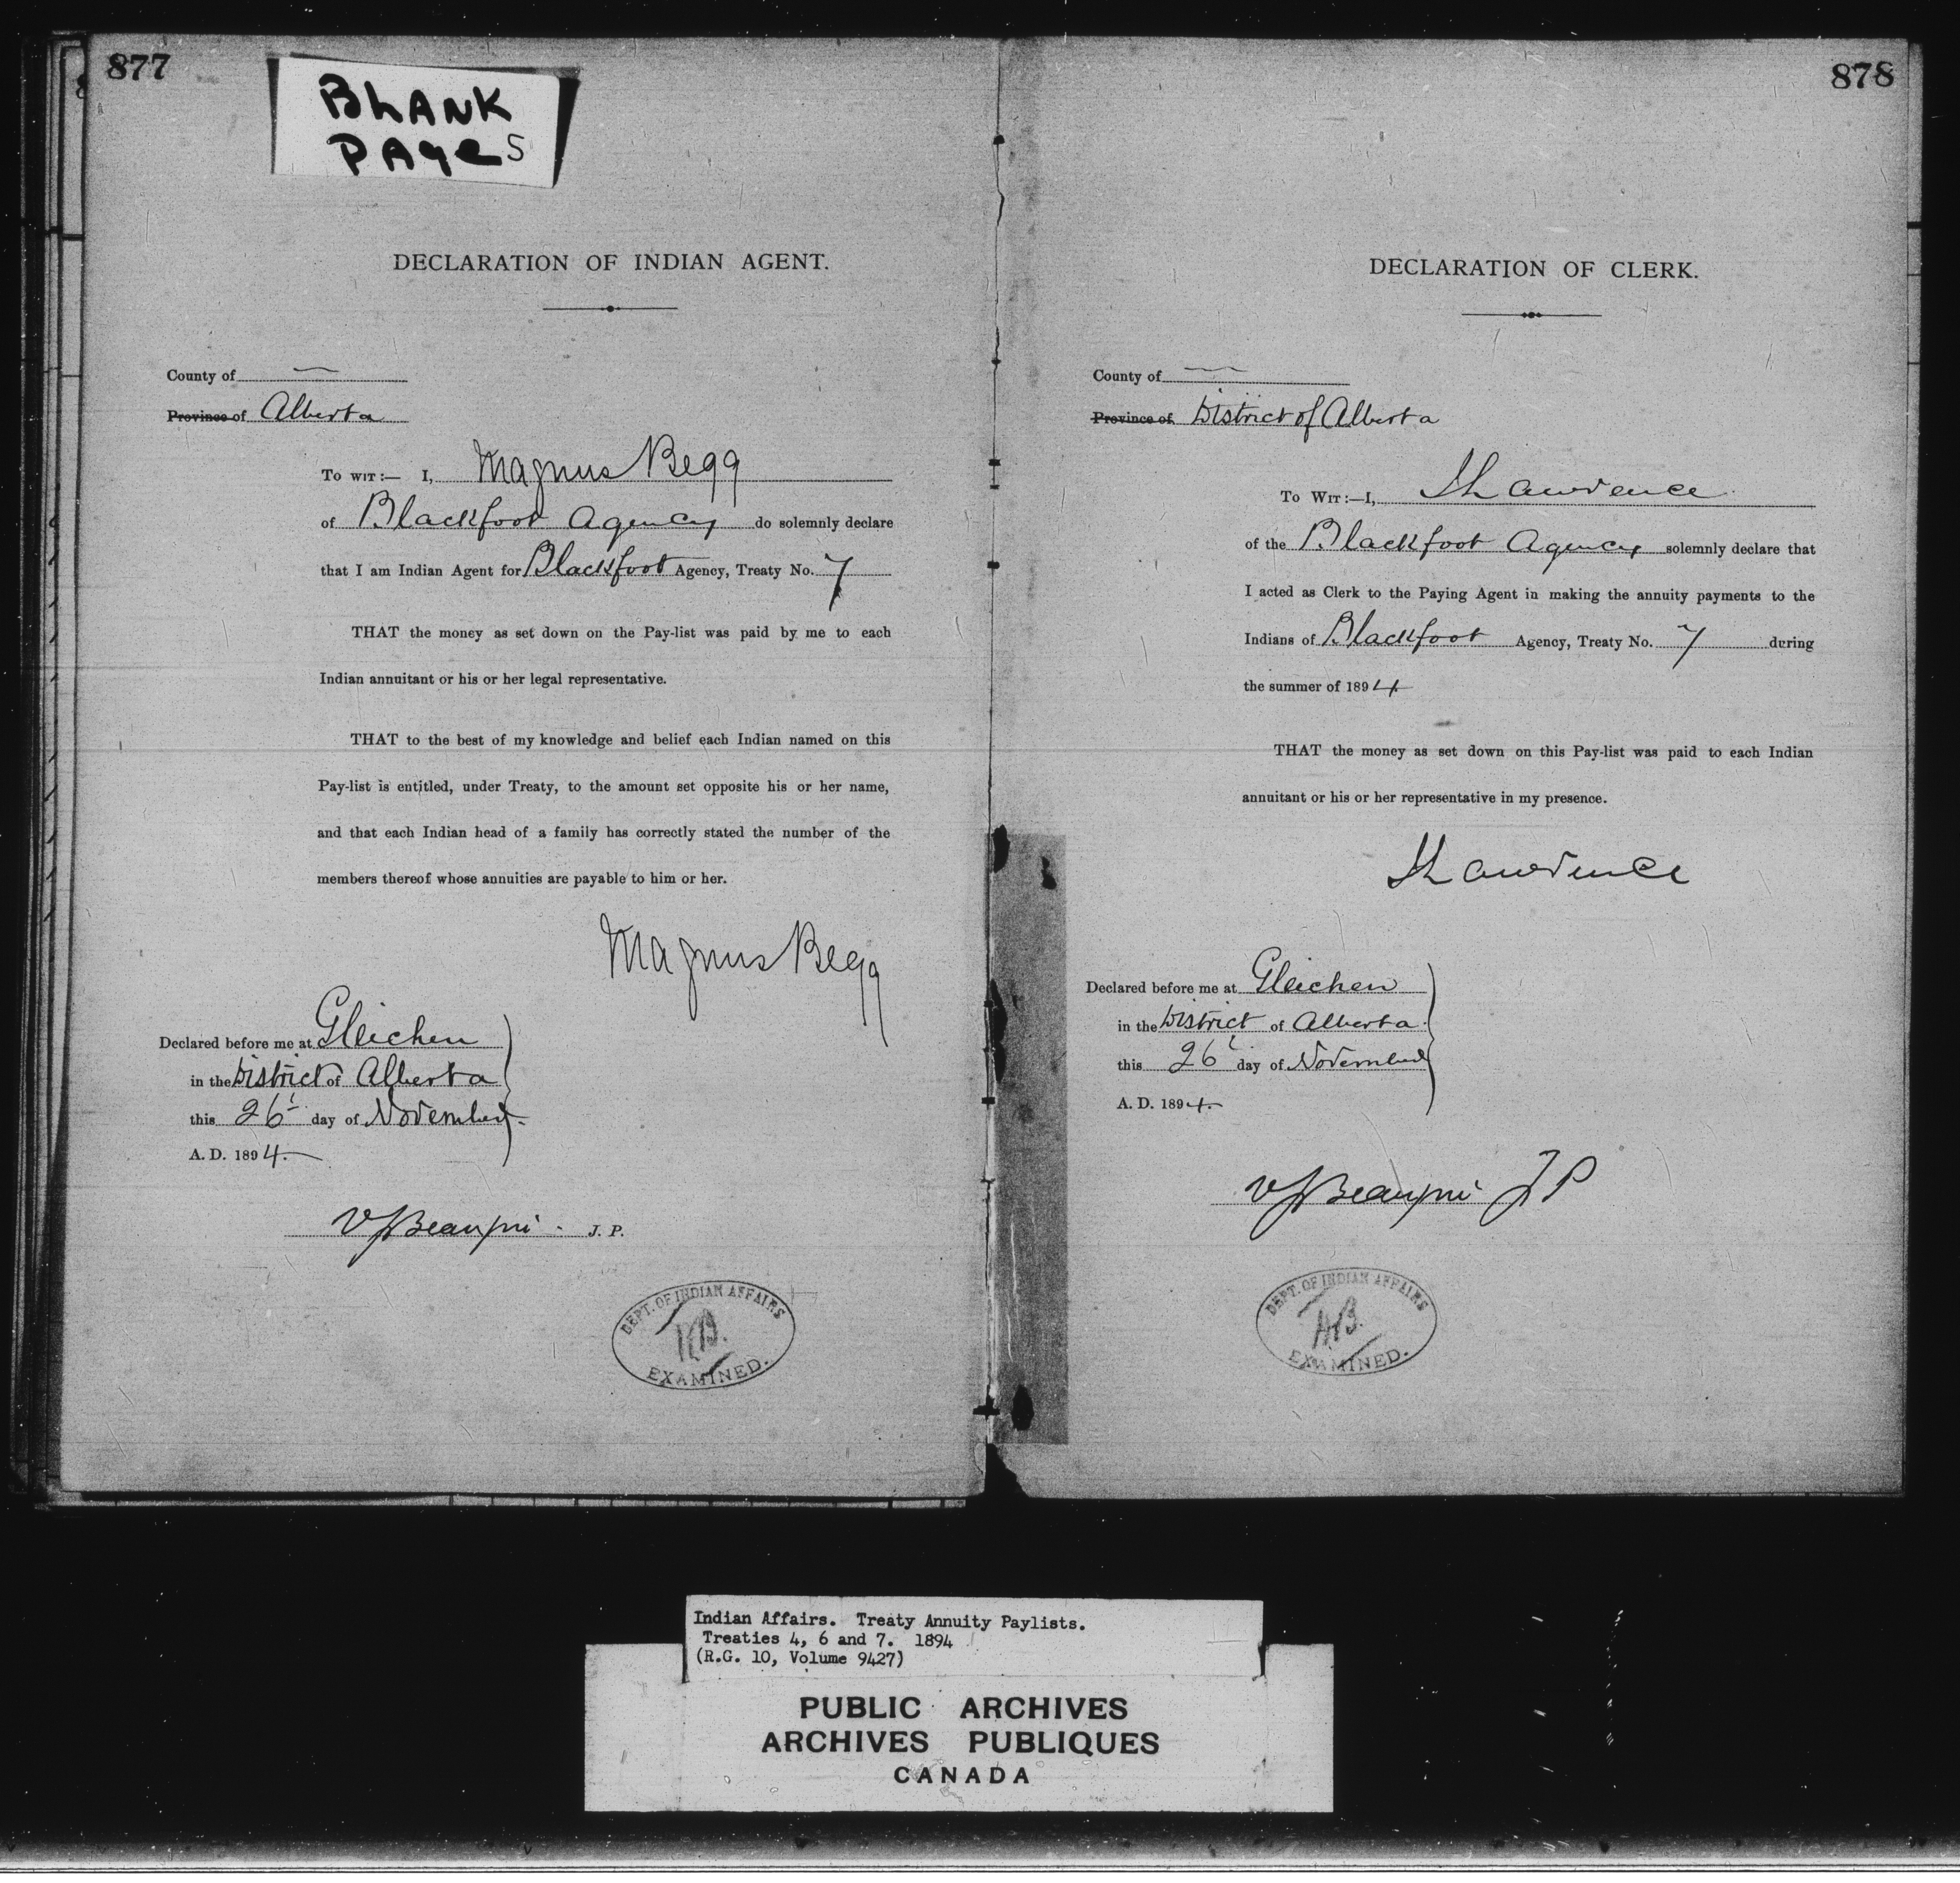 877
BLANK
PAgeS
DECLARATION OF INDIAN AGENT.
County of —
Province of Alberta
To wit:— I, Magnus Begg
of Blackfoot Agency do solemnly declare
that I am Indian Agent for Blackfoot Agency, Treaty No. 7
THAT the money as set down on the Pay-list was paid by me to each
Indian annuitant or his or her legal representative.
THAT to the best of my knowledge and belief each Indian named on this
Pay-list is entitled, under Treaty, to the amount set opposite his or her name,
and that each Indian head of a family has correctly stated the number of the
members thereof whose annuities are payable to him or her.
Magnus Begg
Declared before me at Gleichen
in the District of Alberta
this 26t day of November
A. D. 1894.
Beaupré J. P.
DEPT. OF INDIAN AFFAIRS
EXAMINED.
878
DECLARATION OF CLERK.
County of —
Province of District of Alberta
To Wit:—I, Lawrence
of the Blackfoot Agency solemnly declare that
I acted as Clerk to the Paying Agent in making the annuity payments to the
Indians of Blackfoot Agency, Treaty No. 7 during
the summer of 1894
THAT the money as set down on this Pay-list was paid to each Indian
annuitant or his or her representative in my presence.
Lawrence
Declared before me at Gleichen
in the District of Alberta.
this 26t day of November
A. D. 1894.
Beaupré JP
DEPT. OF INDIAN AFFAIRS
EXAMINED.
Indian Affairs. Treaty Annuity Paylists.
Treaties 4, 6 and 7. 1894
(R.G. 10, Volume 9427)
PUBLIC ARCHIVES
ARCHIVES PUBLIQUES
CANADA